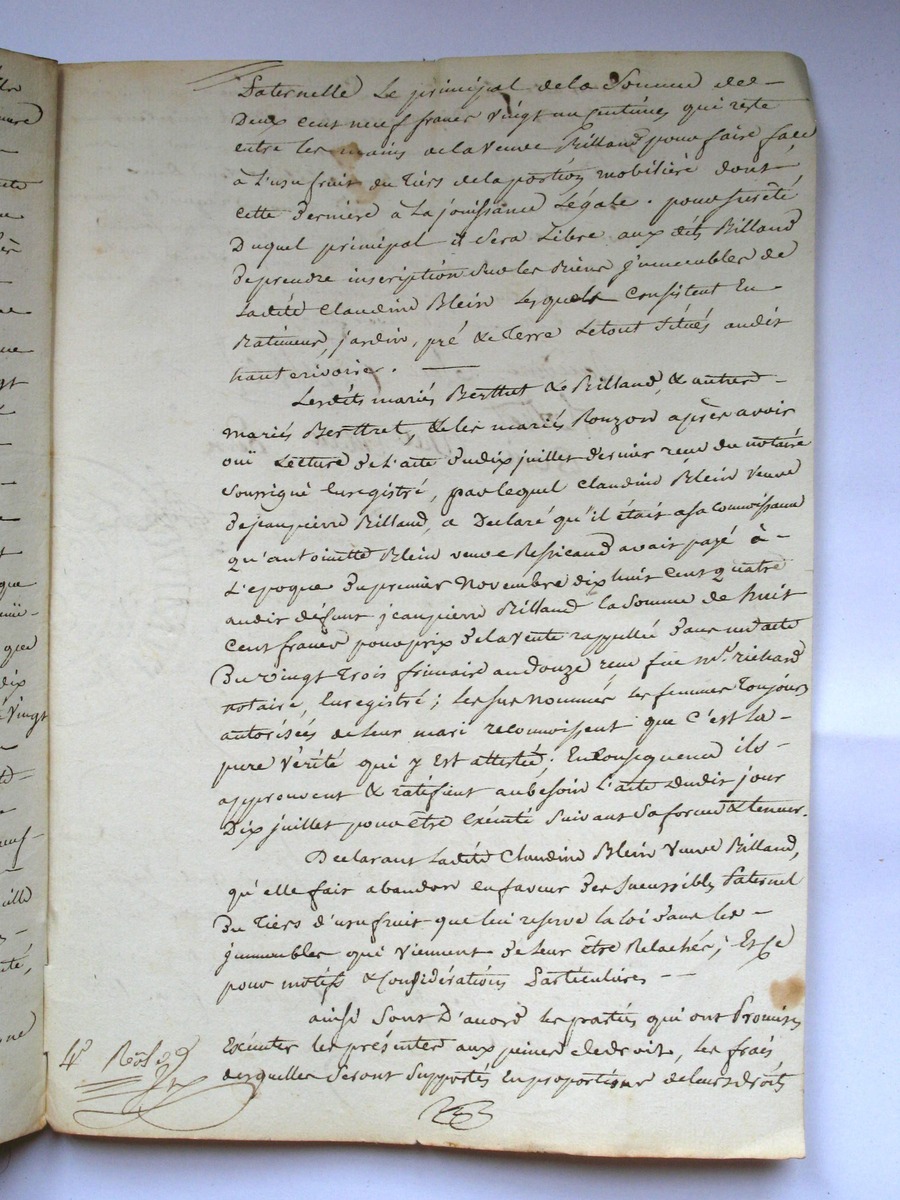 Paternelle le principal de la Somme de
Deux cent neuf francs vingt un Centimes qui reste
entre les mains de la veuve Billand pour faire face
à L'usufruit du tiers de la portion mobilière dont
cette derniere à la jouissance Légale. pour sureté
Duquel principal il Sera Libre aux dits Billand
de prendre inscription sur les biens jmmeubles de
Ladite Claudine Blein Lesquels Consistent En
Batimens, jardin, pré & Terre Le tout Situés audit
hauterivoire.
Lesdits mariés Berthet & Billand, & autres
mariés Berthet, & les mariés Ronzon après avoir
oüi Lecture de L'acte du dix juillet dernier reçu du notaire
Soussigné Enregistré, par lequel Claudine Blein veuve
de jean pierre Billand, a Declaré qu'il était a sa connoissance
qu'antoinette Blein veuve avait payé à
L'epoque du premier Novembre dix huit cent quatre
audit défunt jean pierre Billand la Somme de huit
Cent francs pour prix de la vente rappellée dans un acte
Du vingt trois frimaire an douze reçu feu me. richard
notaire, Enregistré; les sus nommés les femmes Toujours
autorisées de leur mari reconnoissent que C'est la
pure vérité qui y Est attestée. En Consequence ils
approuvent & ratifient au besoin L'acte dudit jour
Dix juillet pour être Exécuté Suivant Sa forme & teneur.
Declarant Ladite Claudine Blein Veuve Billand,
qu'elle fait abandon en faveur des Paternel
Du Tiers d'usufruit que lui reserve la loi dans les
jmmeubles qui viennent de leur être Relachés; Et Ce
pour motifs & Considérations Particulières
ainsi Sont D'accord les parties qui ont Promis
Exécuter les présentes aux peines de droit, les frais
desquelles Seront Supportés En proportion de leurs droits
4e Rôle